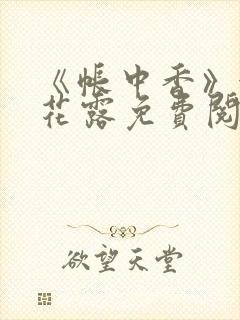 《帐中香》
花露免费阅
欲望天堂